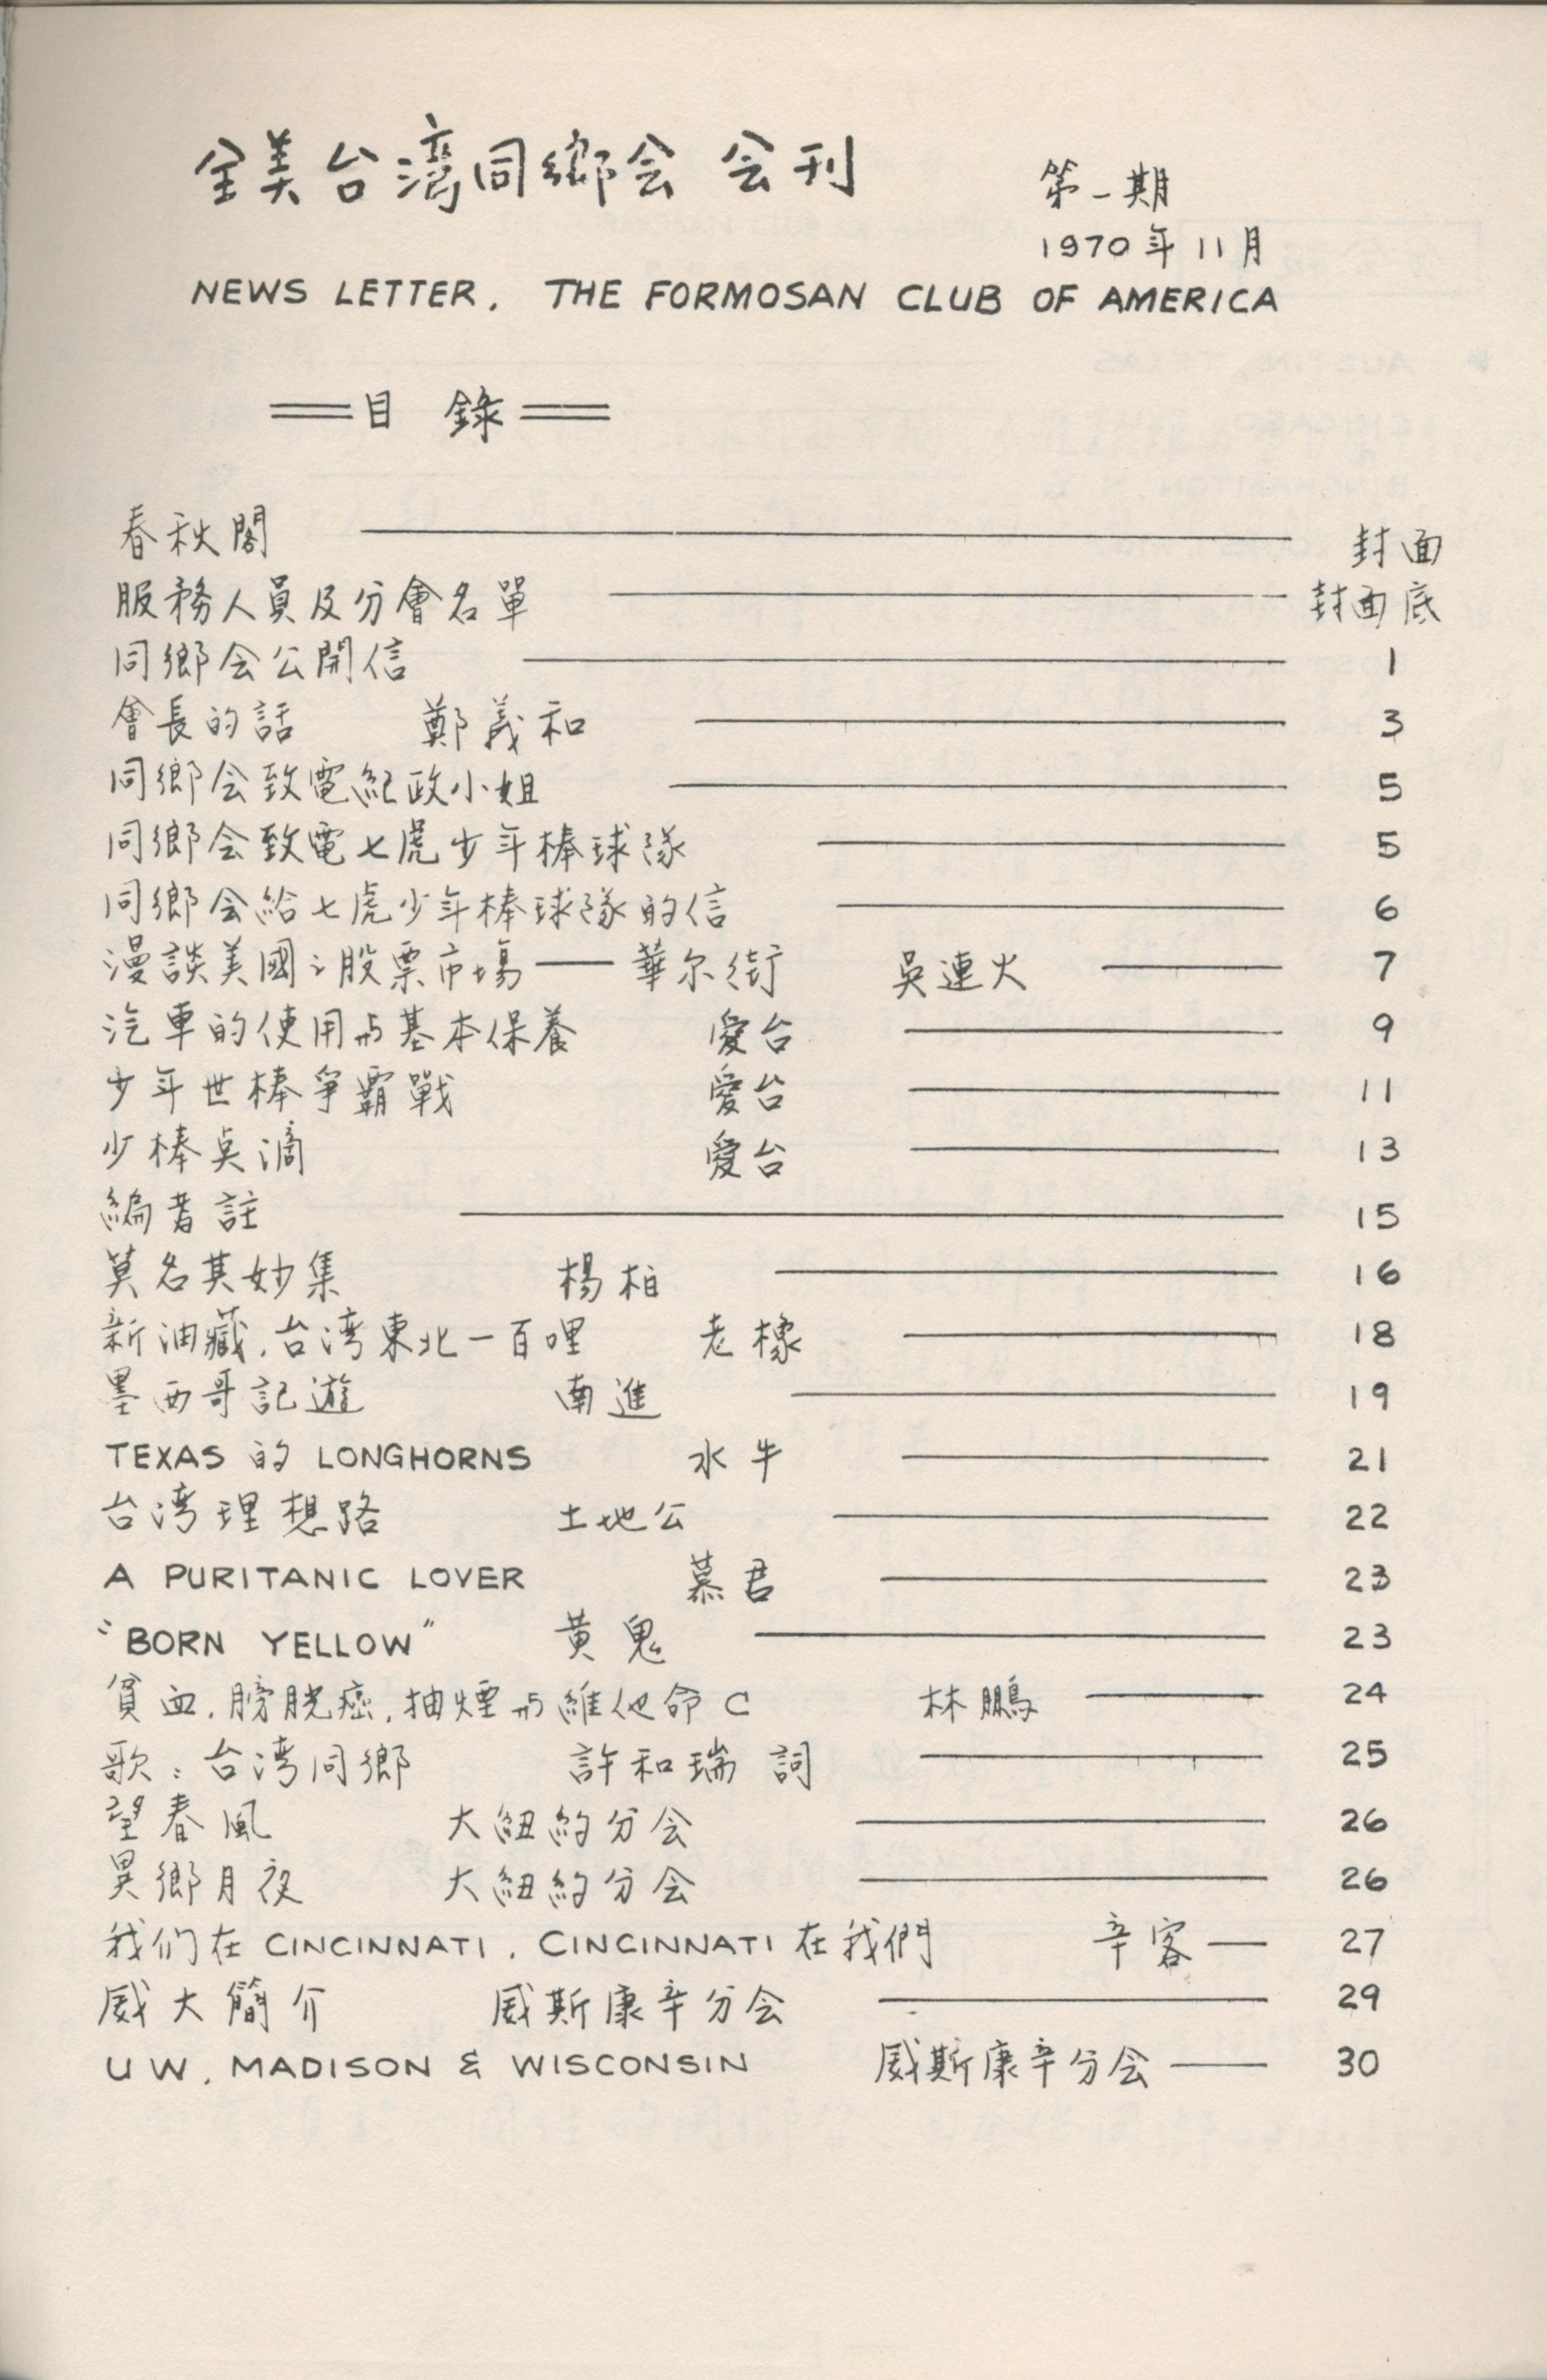 全美台湾同鄉会 会刊
第一期
1970年11月
NEWS LETTER, THE FORMOSAN CLUB OF AMERICA
目 錄
春秋閣 封面
服務人員及分會名單 封面底
同鄉会公開信 1
會長的話 鄭義和 3
同鄉会致電紀政小姐 5
同鄉会致電七虎少年棒球隊 5
同鄉会給七虎少年棒球隊的信 6
漫談美國之股票市場——華尔街 吳連火 7
汽車的使用与基本保養 愛台 9
少年世棒爭霸戰 愛台 11
少棒点滴 愛台 13
編者註 15
莫名其妙集 楊柏 16
新油藏,台湾東北一百哩 老橡 18
墨西哥記遊 南進 19
TEXAS 的 LONGHORNS 水牛 21
台湾理想路 土地公 22
A PURITANIC LOVER 慕君 23
"BORN YELLOW" 黄鬼 23
貧血,膀胱癌,抽煙与維他命C 林鵬 24
歌:台湾同鄉 許和瑞 詞 25
望春風 大紐約分会 26
異鄉月夜 大紐約分会 26
我们在 CINCINNATI, CINCINNATI 在我們 辛客 27
威大簡介 威斯康辛分会 29
UW, MADISON & WISCONSIN 威斯康辛分会 30